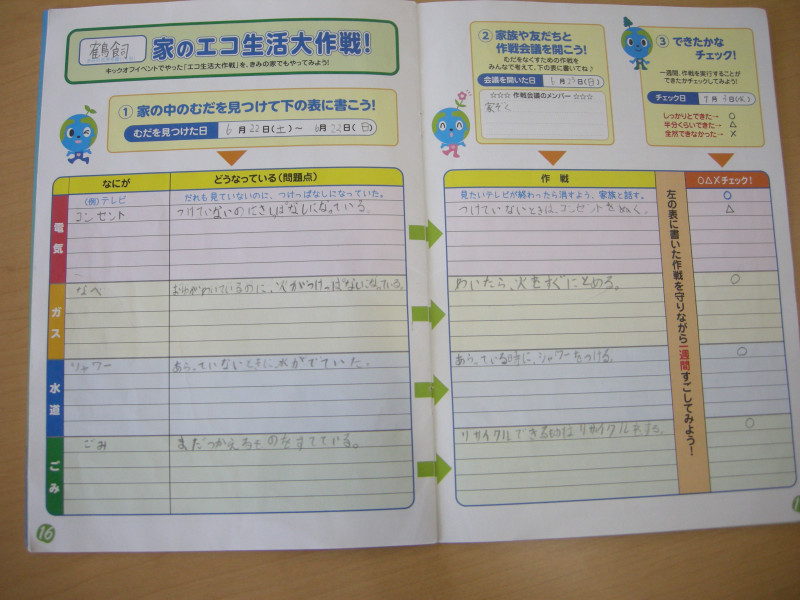 鵜飼 家のエコ生活大作戦!
キックオフイベントでやった「エコ生活大作戦」を、きみの家でもやってみよう!
① 家の中のむだを見つけて下の表に書こう!
むだを見つけた日 6月22日(土)~6月22日(日)
なにが どうなっている(問題点)
(例)テレビ だれも見ていないのに、つけっぱなしになっていた。
電気
コンセント つけていないのにさしぱなしになっている。
ガス
なべ おゆがわいているのに、火がつけっぱなしになっている。
水道
シャワー あらっていないときに、水がでていた。
ごみ
ごみ まだつかえるものをすてている。
16
② 家族や友だちと
作戦会議を開こう!
むだをなくすための作戦を
みんなで考えて、下の表に書いてね♪
会議を開いた日 6月23日(日)
☆☆☆ 作戦会議のメンバー ☆☆☆
家ぞく
③ できたかな
チェック!
一週間、作戦を実行することが
できたかチェックしてみよう!
チェック日 7月 日(火)
しっかりとできた→ ○
半分くらいできた→ △
全然できなかった→ ×
作戦 ○△×チェック!
見たいテレビが終わったら消すよう、家族と話す。 ○
つけていないときは、コンセントをぬく。 △
わいたら、火をすぐにとめる。 ○
あらっている時に、シャワーをつける。 ○
リサイクルできる物はリサイクルをする。 ○
左の表に書いた作戦を守りながら一週間すごしてみよう!